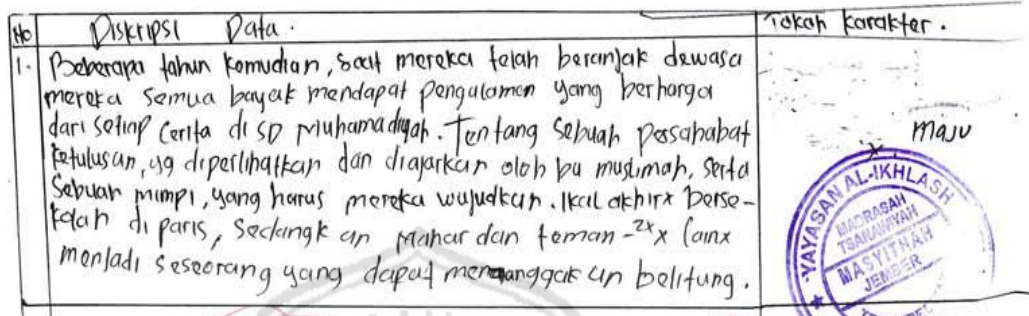 No Diskripsi Data. Tokoh karakter.
1. Beberapa tahun kemudian, saat mereka telah beranjak dewasa
mereka semua bayak mendapat pengalaman yang berharga
dari setiap cerita di SD Muhamadiyah. Tentang sebuah persahabat
ketulusan, yg diperlihatkan dan diajarkan oleh bu muslimah, serta
Sebuah mimpi, yang harus mereka wujudkan. Ikal akhirx berse-
kolah di paris, sedangkan Mahar dan teman-2x x lainx
menjadi seseorang yang dapat menganggakan belitung.
maju
YAYASAN AL-IKHLASH
MADRASAH
TSANAWIYAH
MASYITHAH
JEMBER